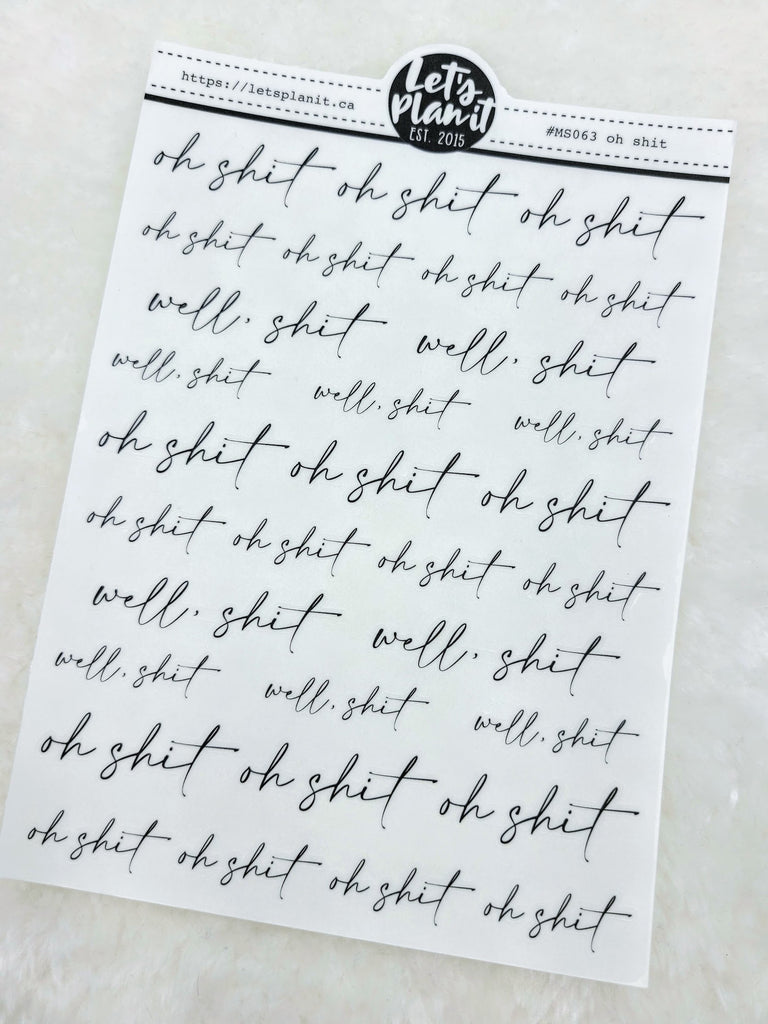 https://letsplanit.ca
Let's
Plan it
EST. 2015
#MS063 oh shit
oh shit oh shit oh shit
oh shit oh shit oh shit oh shit
well, shit well, shit
well, shit well, shit well, shit
oh shit oh shit oh shit
oh shit oh shit oh shit oh shit
well, shit well, shit
well, shit well, shit well, shit
oh shit oh shit oh shit
oh shit oh shit oh shit oh shit